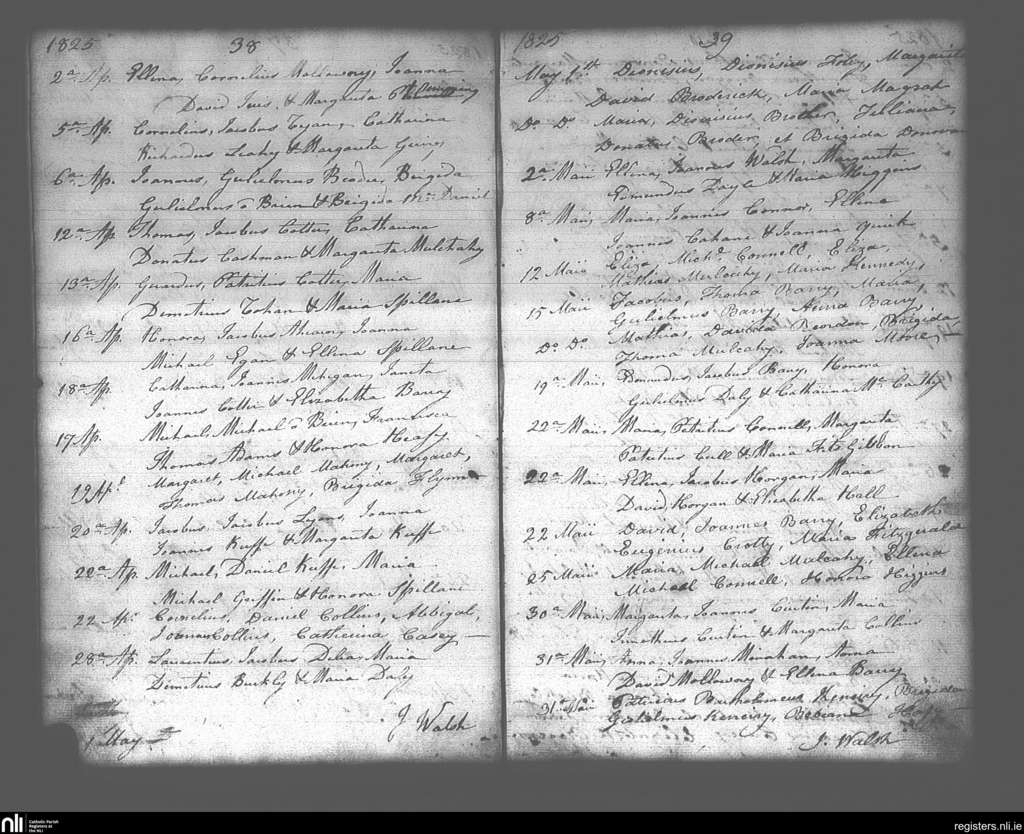 1825 38
2a Ap. Ellena, Cornelius Mollowny, Joanna
David & Margarita
5a Ap. Cornelius, Jacobus Ryan, Catharina
Richardus Leahy & Margarita
6a Ap. Joannes, Gulielmus Broder, Brigida
Gulielmus o Brien & Brigida Mc Daniel
12a Ap Thomas, Jacobus Cotter, Catharina
Donatus Cashman & Margarita Mulcahy
13a Ap. Patritius Cotter, Maria
Demetrius Cohan & Maria Spillane
16a Ap. Honora, Jacobus Joanna
Michael Egan & Ellena Spillane
18a Ap. Catharina, Joannis Mehigan,
Joannes Cotter & Elizabetha Barry
17 Ap. Michael, Michael o Brien, Francisca
Thomas Adams & Honora Heafy
19 Apl Margaret, Michael Mahony, Margaret,
Thomas Mahony, Brigida Flynn
20a Ap. Jacobus, Jacobus Lyons, Joanna
Joannes Kuffe & Margarita Kuffe
22a Ap. Michael, Daniel Kuffe, Maria
Michael Griffin & Honora Spillane
22 Apr Cornelius, Daniel Collins, Abbigal,
Joanna Collins, Catherina Casey
28a Ap. Laurentius, Jacobus Maria
Demetrius Buckly & Maria Daly
1 May
J Walsh
1825 39
May 1st Dionisius, Dionisius Foley, Margarit
David Broderick, Maria Magrah
Do. Do. Maria, Dionisius Brother, Juliana,
Donatus Broder, et Brigida Donovan
2a Maii Ellena, Joannes Walsh, Margarita
Edmundus & Maria Higgins
8a Maii, Maria, Joannis Connor, Ellena
Joannes Cahane & Joanna Quirk
12 Maii Eliza, Michl. Connell, Eliza,
Mathias Mulcahy, Maria Kennedy,
15 Maii Jacobus, Thoma Barry, Maria,
Gulielmus Barry, Anna Barry,
Do. Do. Mathias, Davida Reordon, Brigida
Thoma Mulcahy, Joanna Moore,
19a Maii, Edmundus, Jacobus Barry, Honora
Gulielmus Daly & Catharina Mc Carthy
22a Maii, Maria, Patritius Connell, Margarita
Patritius Cull & Maria Fitz Gibbon
22a Maii, Ellena, Jacobus Horgan, Maria
David Horgan & Elizabetha Hall
22 Maii David, Joannes Barry, Elizabeth
Eugenius Crotty, Maria Fitzgerald
25 Maii Maria, Michael Mulcahy, Ellena
Michael Connell, Honora Higgins
30a Maii, Margarita, Joannes Curtin, Maria
Timotheus Curtin & Margarita Collins
31a Maii, Anna, Joannes Monahan, Anna
David Mollowny & Ellena Barry
31st Maii Patricius Bartholomeus Keneiry, Brigida
Gulielmus Keneiry,
J. Walsh
nli Catholic Parish
Registers at
the NLI
registers.nli.ie